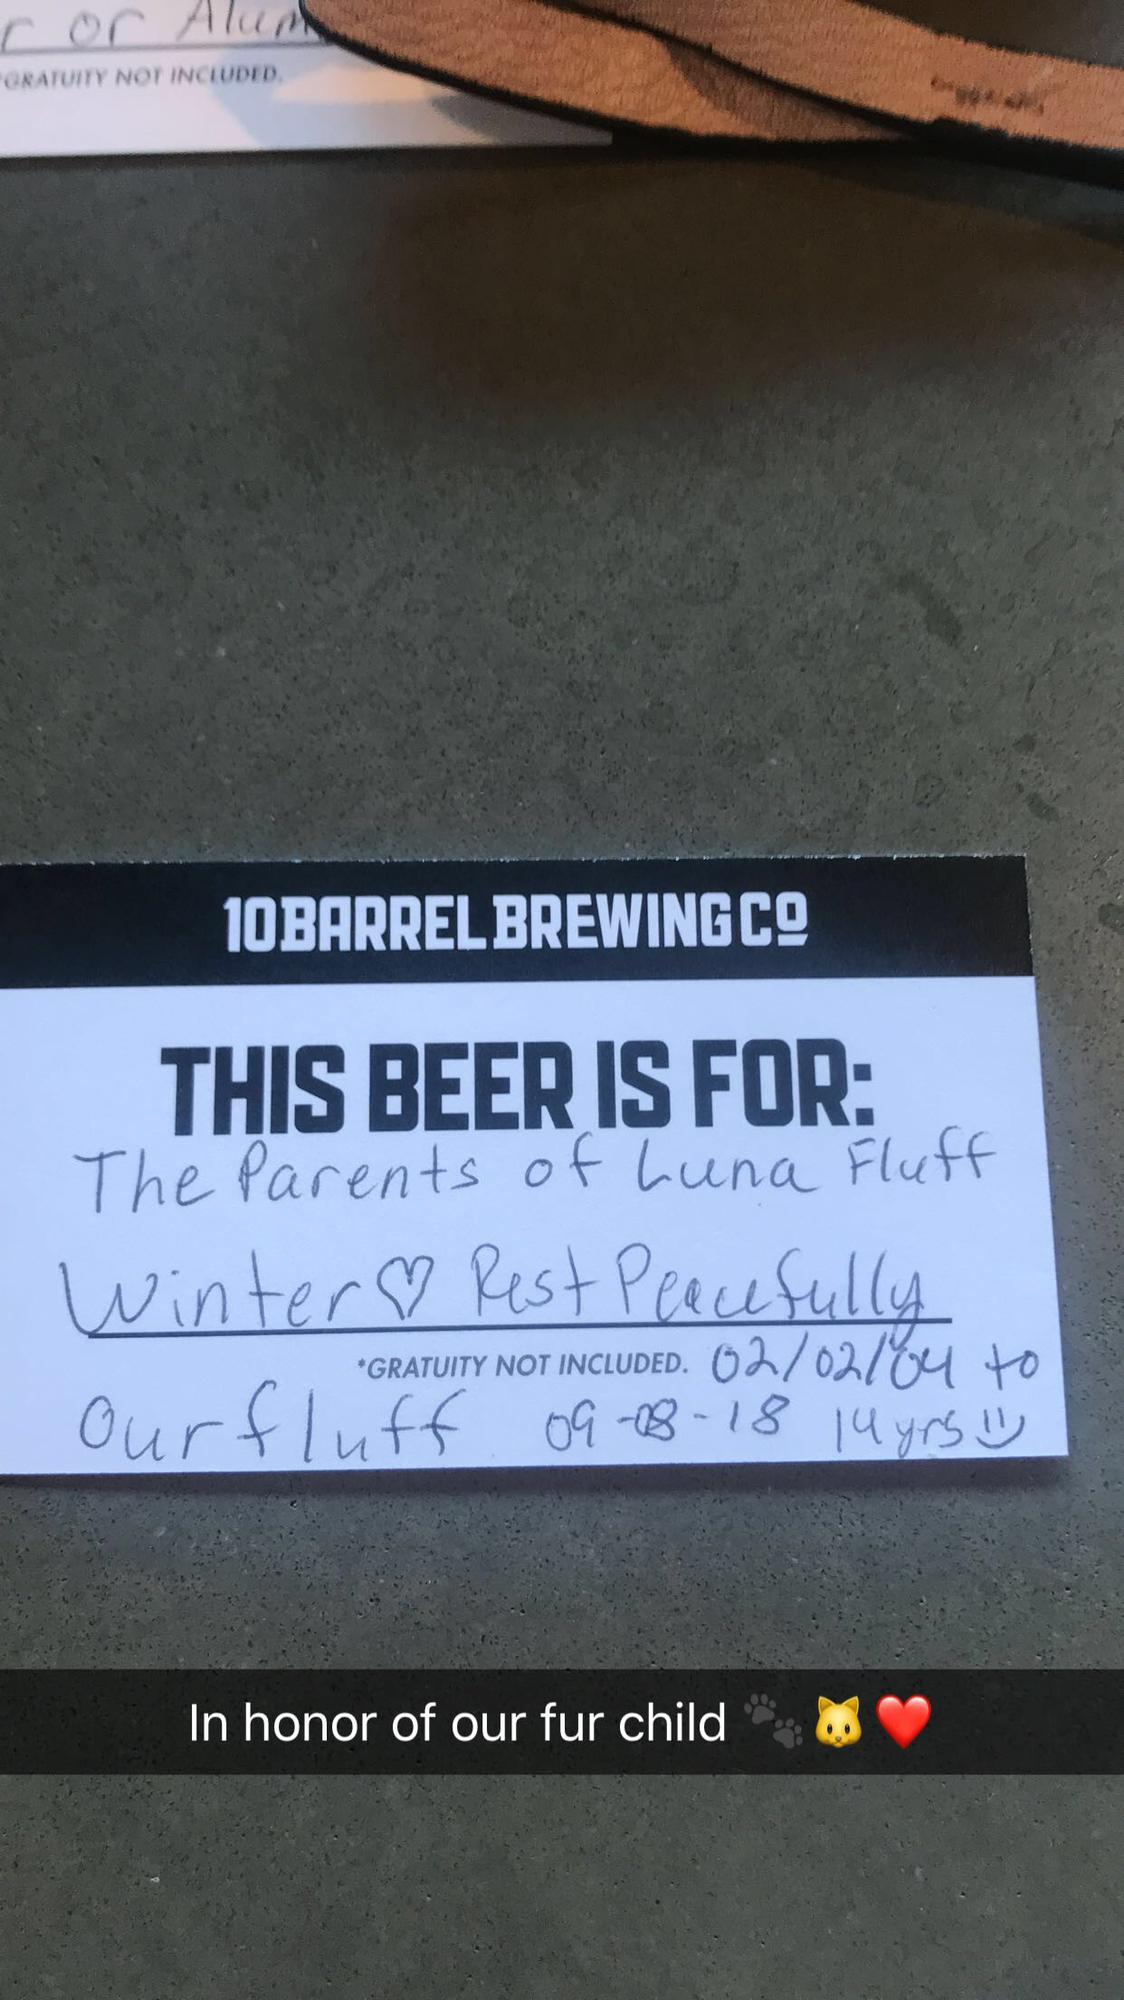 r or Alum
*GRATUITY NOT INCLUDED.
10 BARREL BREWING CO
THIS BEER IS FOR:
The Parents of Luna Fluff
Winter♡ Rest Peacefully
*GRATUITY NOT INCLUDED. 02/02/04 to
Our fluff 09-08-18 14yrs :)
In honor of our fur child 🐾🐱❤️